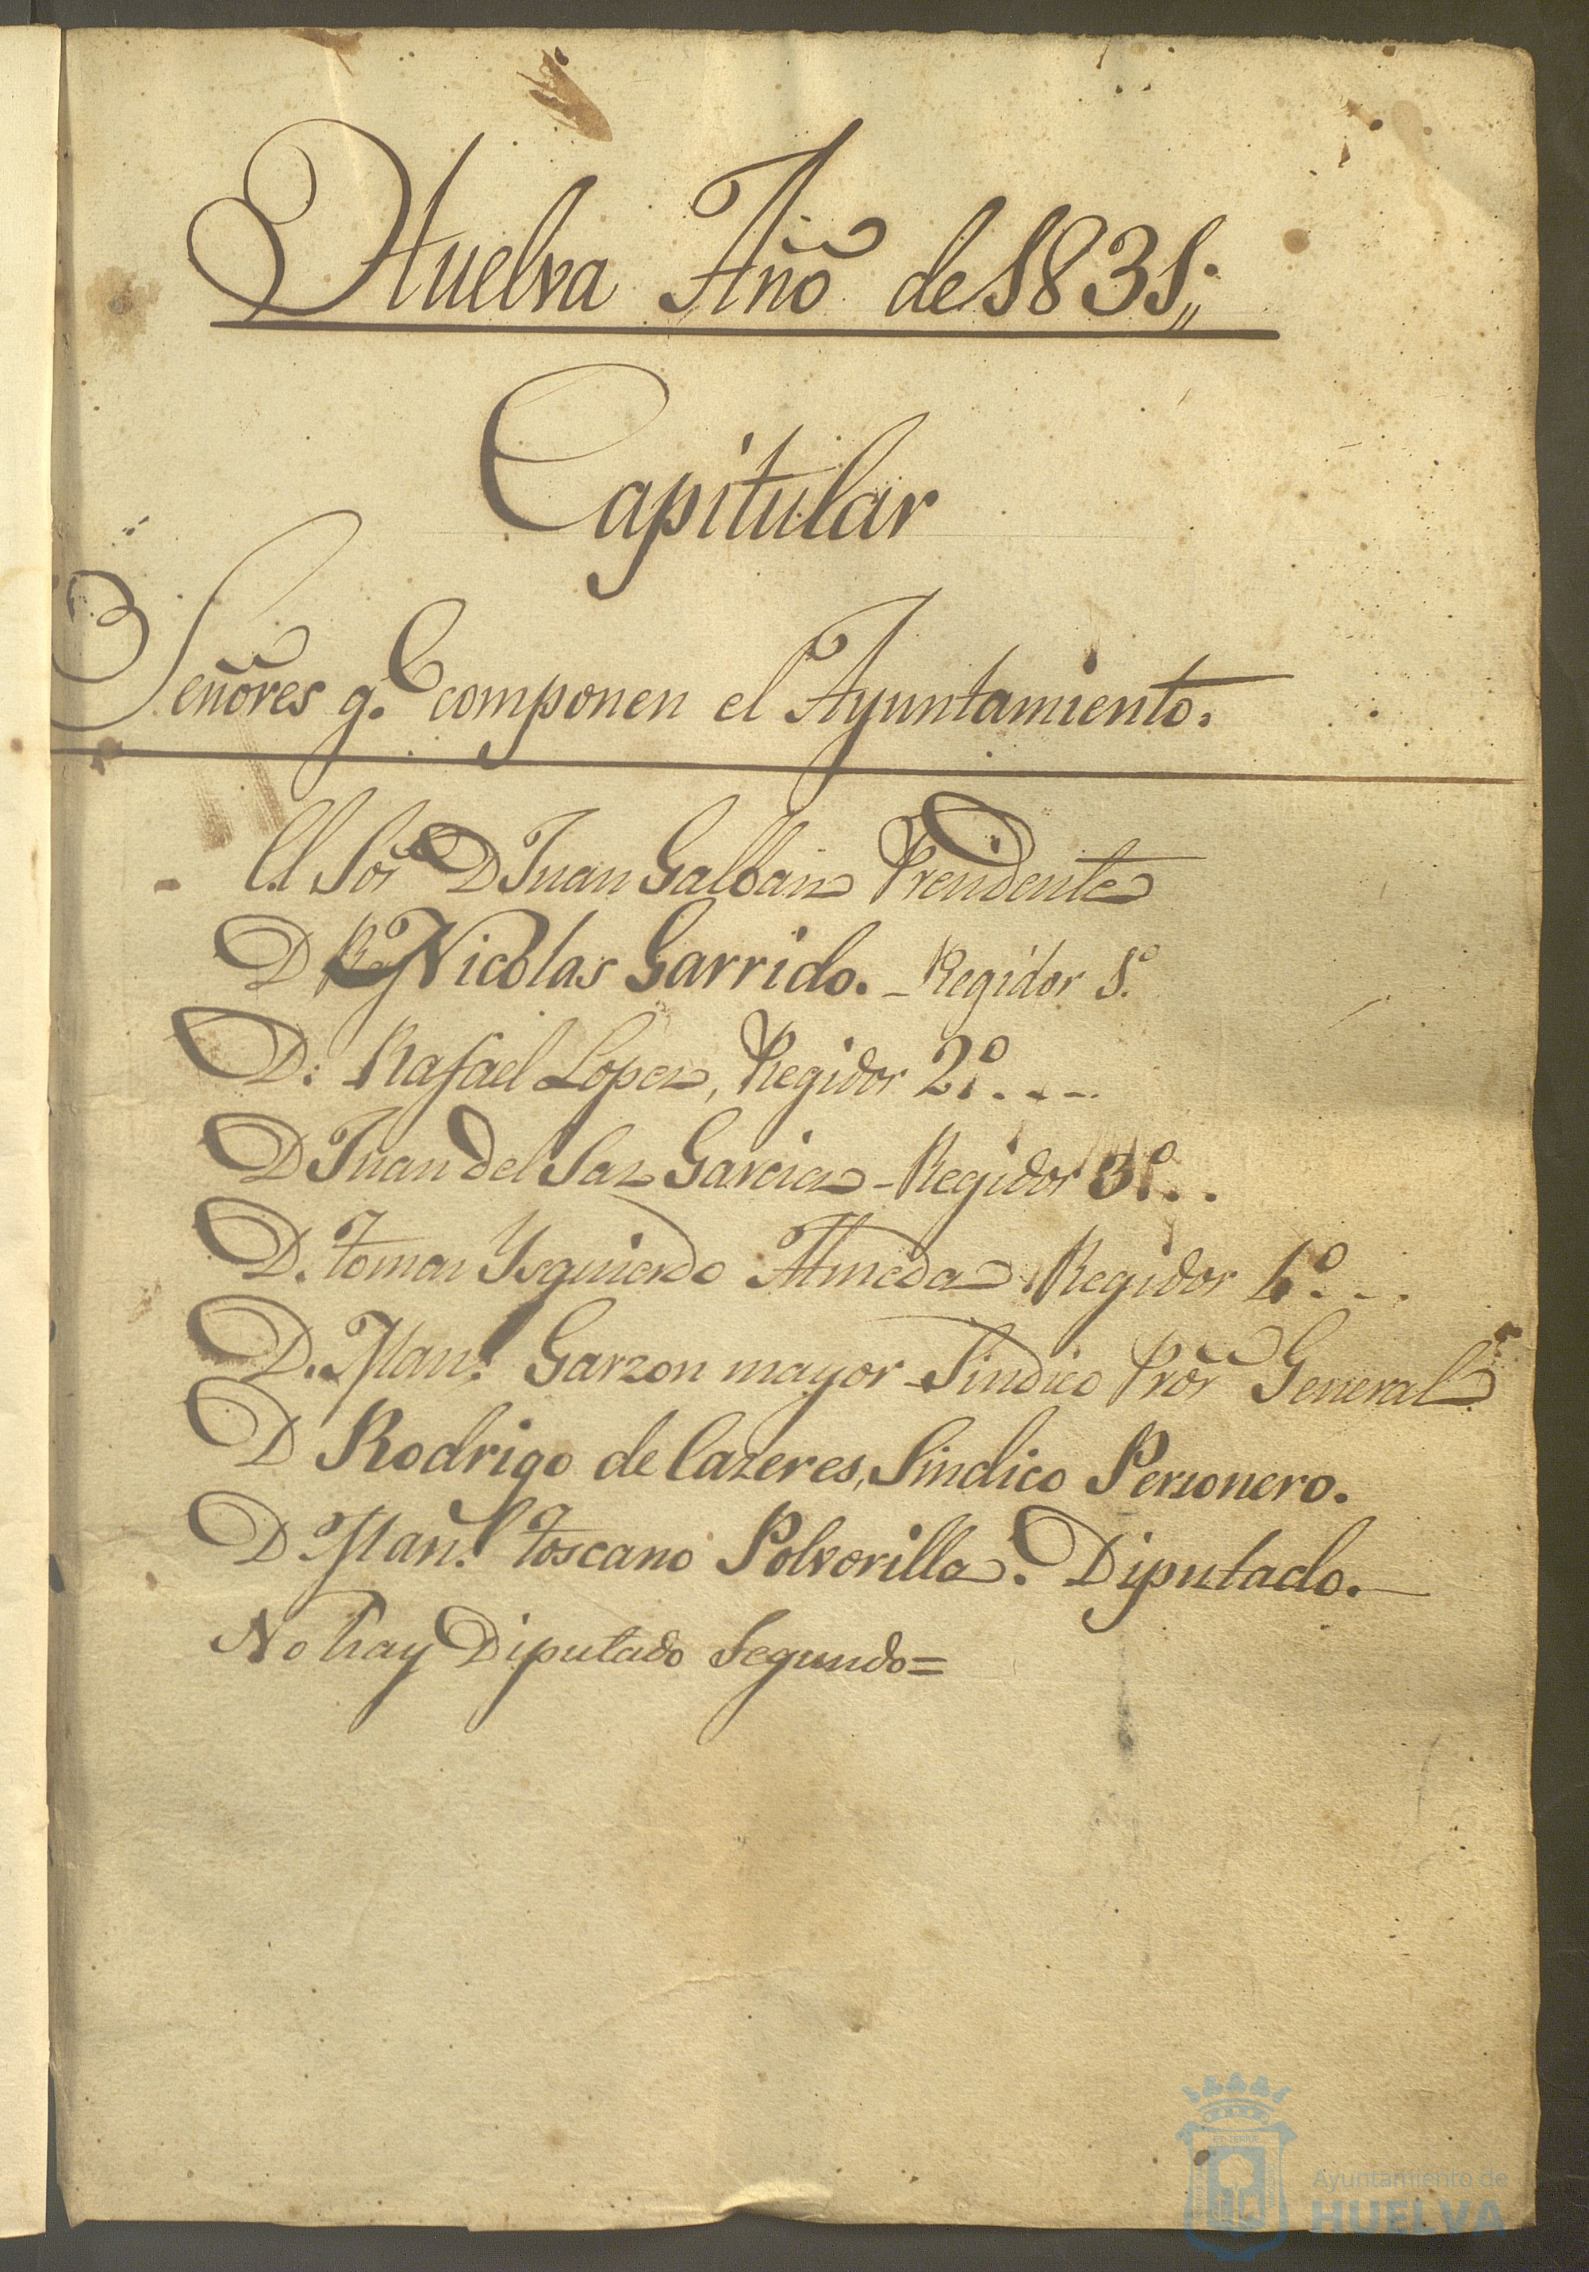 Huelva Año de 1831,,
Capitular
Señores q.e componen el Ayuntamiento.
El Sor. D Juan Galban Presidente
D Nicolas Garrido. - Regidor 1.º
D. Rafael Lopez, Regidor 2.º . - -
D Juan del Saz Garcia - Regidor 3.º . .
D. Tomas Ysquierdo Almeda Regidor 4.º . - .
D. Man.l Garzon mayor Sindico Pror General
D Rodrigo de Cazeres, Sindico Personero.
D Man.l Toscano Polvorilla. Diputado. -
No hay Diputado Segundo =
Ayuntamiento de
HUELVA